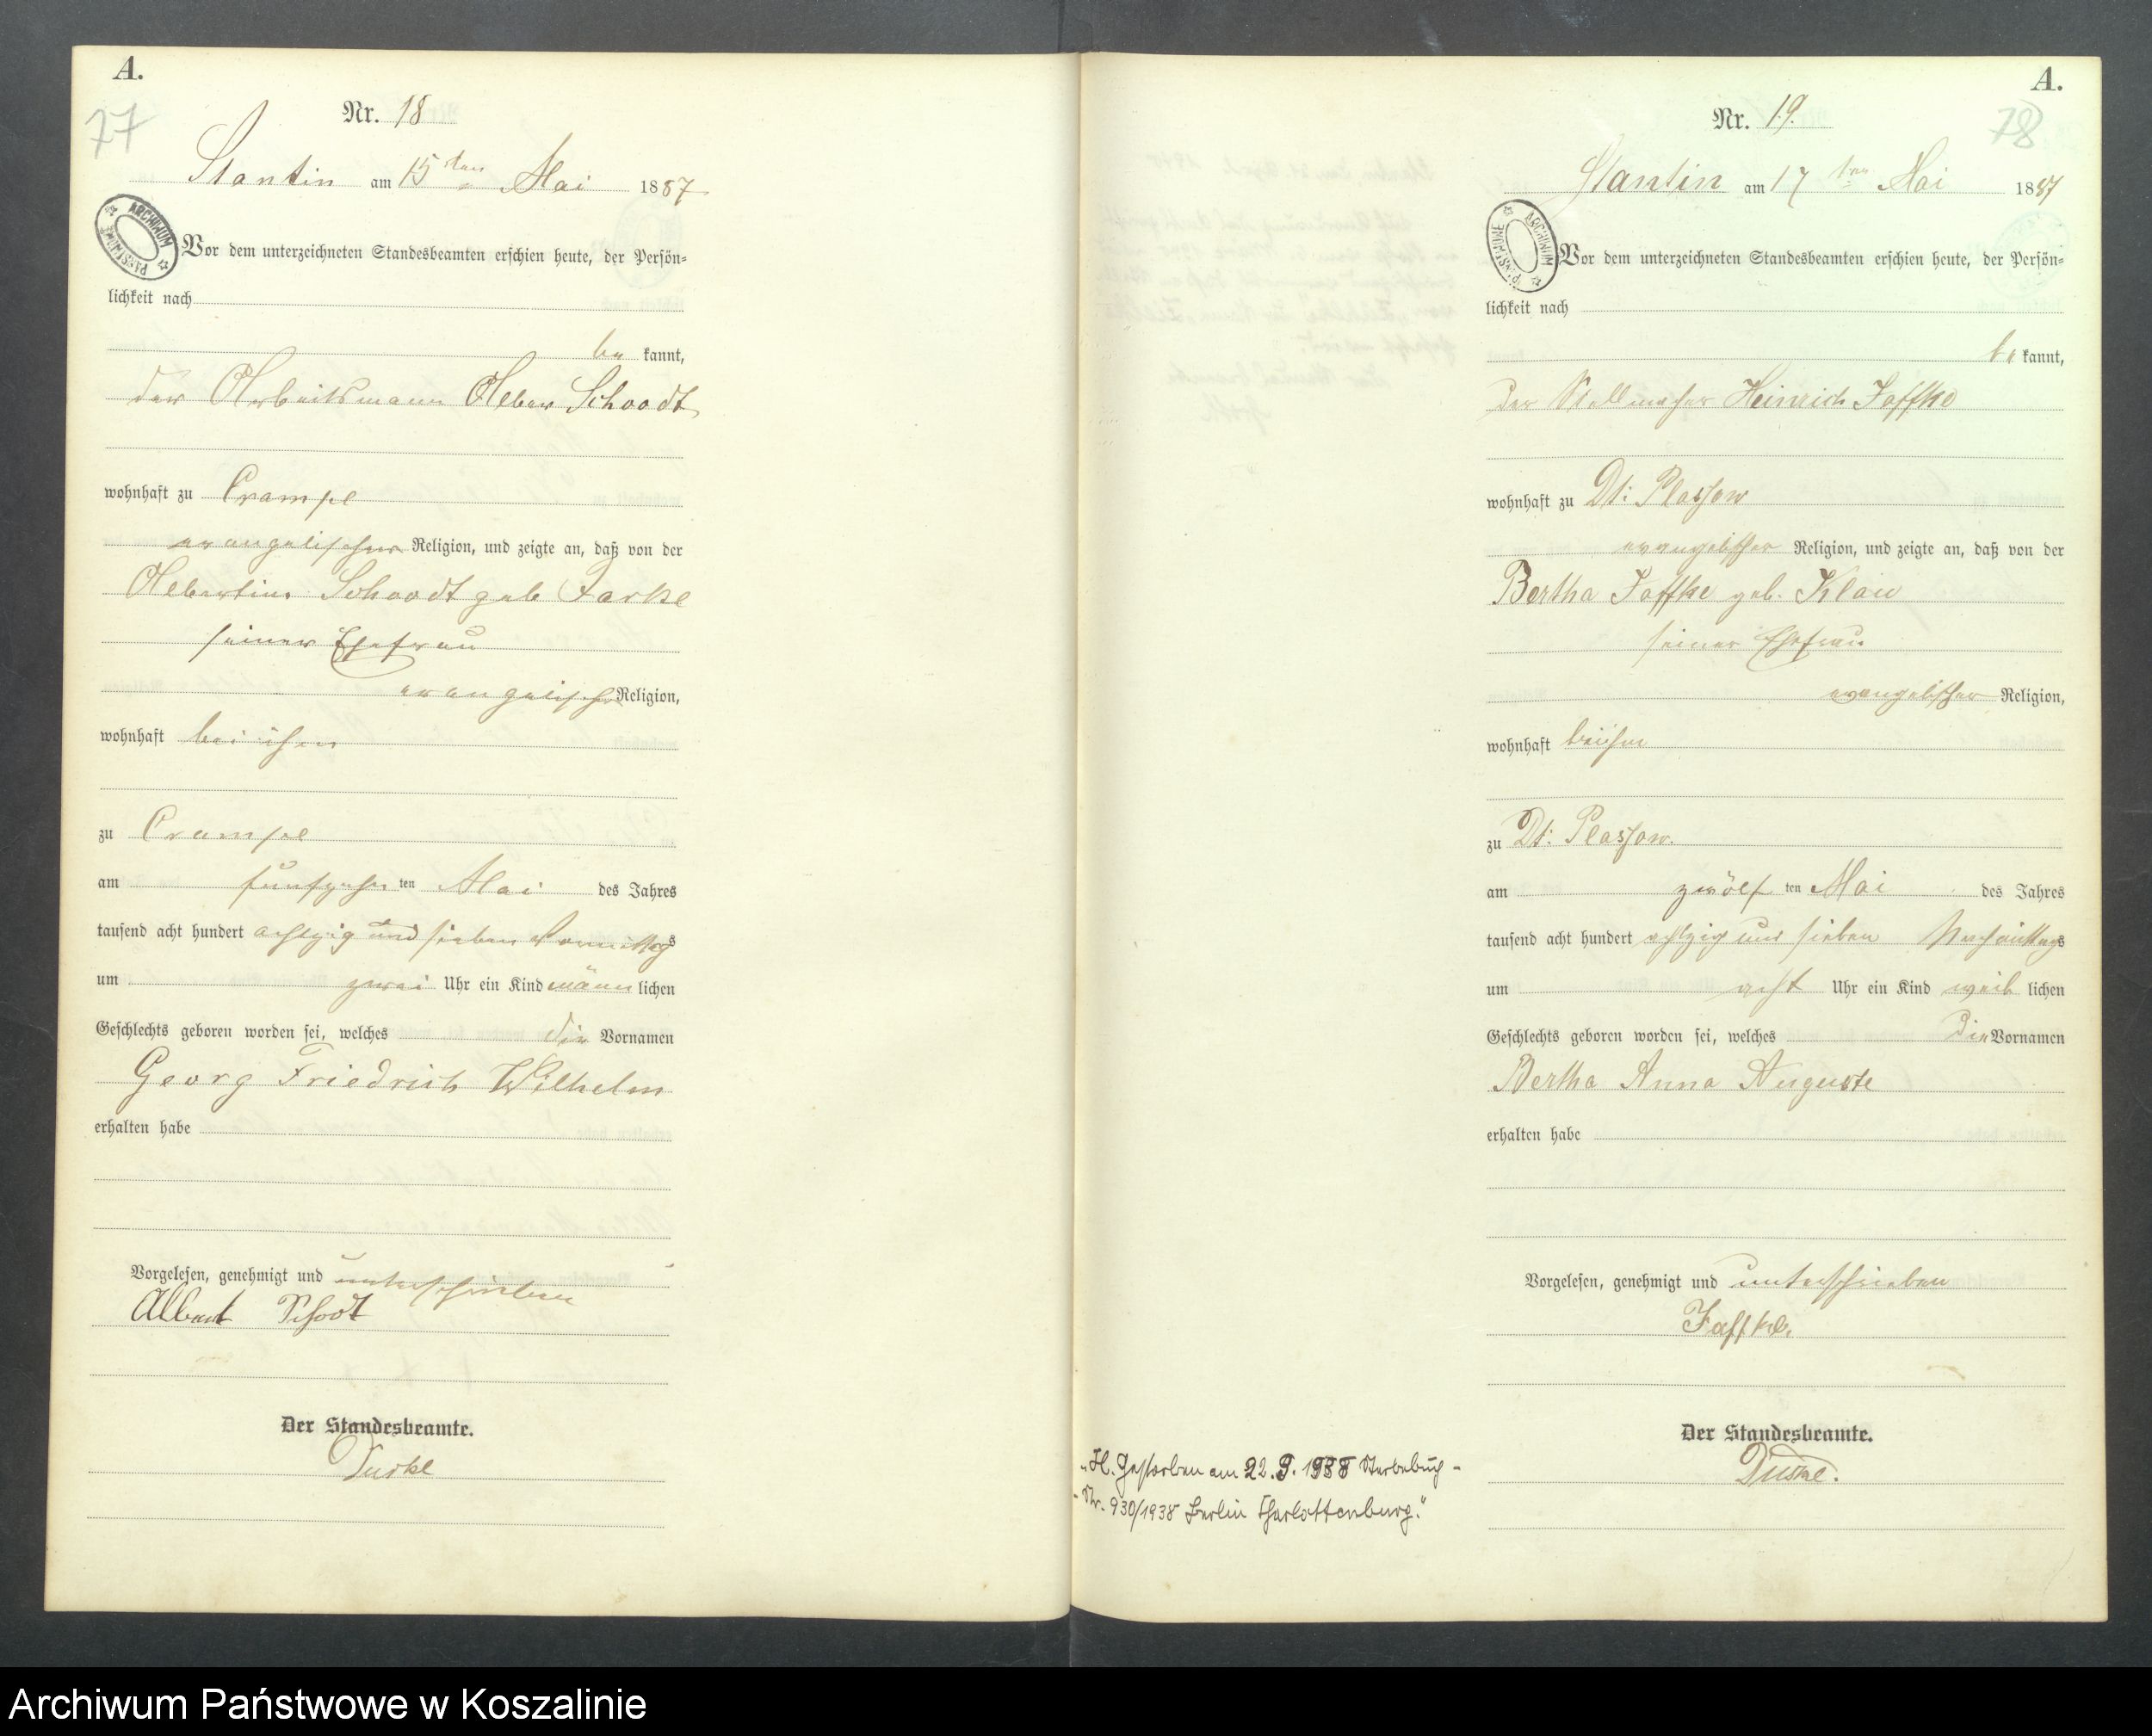 A.
77
Nr. 18
Stantin am 15ten Mai 1887
ARCHIWUM PAŃSTWOWE
Vor dem unterzeichneten Standesbeamten erschien heute, der Persön-
lichkeit nach
be kannt,
der Arbeitsmann Schoodt
wohnhaft zu Crampe
evangelischer Religion, und zeigte an, daß von der
Schoodt geb
seiner Ehefrau
evangelischer Religion,
wohnhaft bei ihm
zu Crampe
am fünfzehn ten Mai des Jahres
tausend acht hundert achtzig und sieben Vormittags
um zwei Uhr ein Kind männ lichen
Geschlechts geboren worden sei, welches die Vornamen
Georg Friedrich Wilhelm
erhalten habe
Vorgelesen, genehmigt und unterschrieben
Albert Schoot
Der Standesbeamte.
A.
78
Nr. 19.
Stantin am 17ten Mai 1887
ARCHIWUM PAŃSTWOWE
Vor dem unterzeichneten Standesbeamten erschien heute, der Persön-
lichkeit nach
be kannt,
der Stellmacher Heinrich Jaffke
wohnhaft zu Dt: Plassow
evangelischer Religion, und zeigte an, daß von der
Bertha Jaffke geb.
seiner Ehefrau
evangelischer Religion,
wohnhaft bei ihm
zu Dt: Plassow.
am zwölf ten Mai des Jahres
tausend acht hundert achtzig und sieben Nachmittags
um acht Uhr ein Kind weib lichen
Geschlechts geboren worden sei, welches die Vornamen
Bertha Anna Auguste
erhalten habe
Vorgelesen, genehmigt und unterschrieben
Jaffke.
Der Standesbeamte.
„H. Gestorben am 22.9.1938 Sterbebuch -
- Nr. 930/1938 Berlin Charlottenburg.“
Archiwum Państwowe w Koszalinie